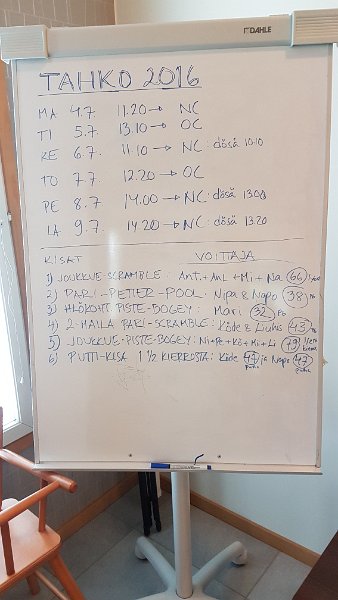 DAHLE
TAHKO 2016
MA 4.7. 11.20→ NC
TI 5.7. 13.10→ OC
KE 6.7. 11.10→NC: dösä 10.10
TO 7.7. 12.20→ OC
PE 8.7 14.00→NC: dösä 13.00
LA 9.7 14.20→NC: dösä 13.20
KISAT VOITTAJA
1) JOUKKUE-SCRAMBLE: Ant.+AnL+Mi+Na 66
2) PARI-PETTER-POOL: Nipa & Napo 38 pb
3) HLÖKOHT. PISTE-BOGEY: Mari 32 Pb
4) 2-MAILA PARI-SCRAMBLE: Köde & Liuhis 43
5) JOUKKUE-PISTE-BOGEY: Ni+Pe+Kö+Mi+Li 79
6) PUTTI-KISA 1 1/2 KIERROSTA: Köde 47 ja Napo 47